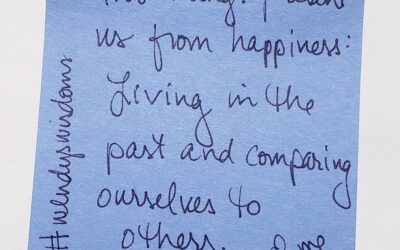 us from happiness:
Living in the
past and comparing
ourselves to
others.
#wendyswisdoms